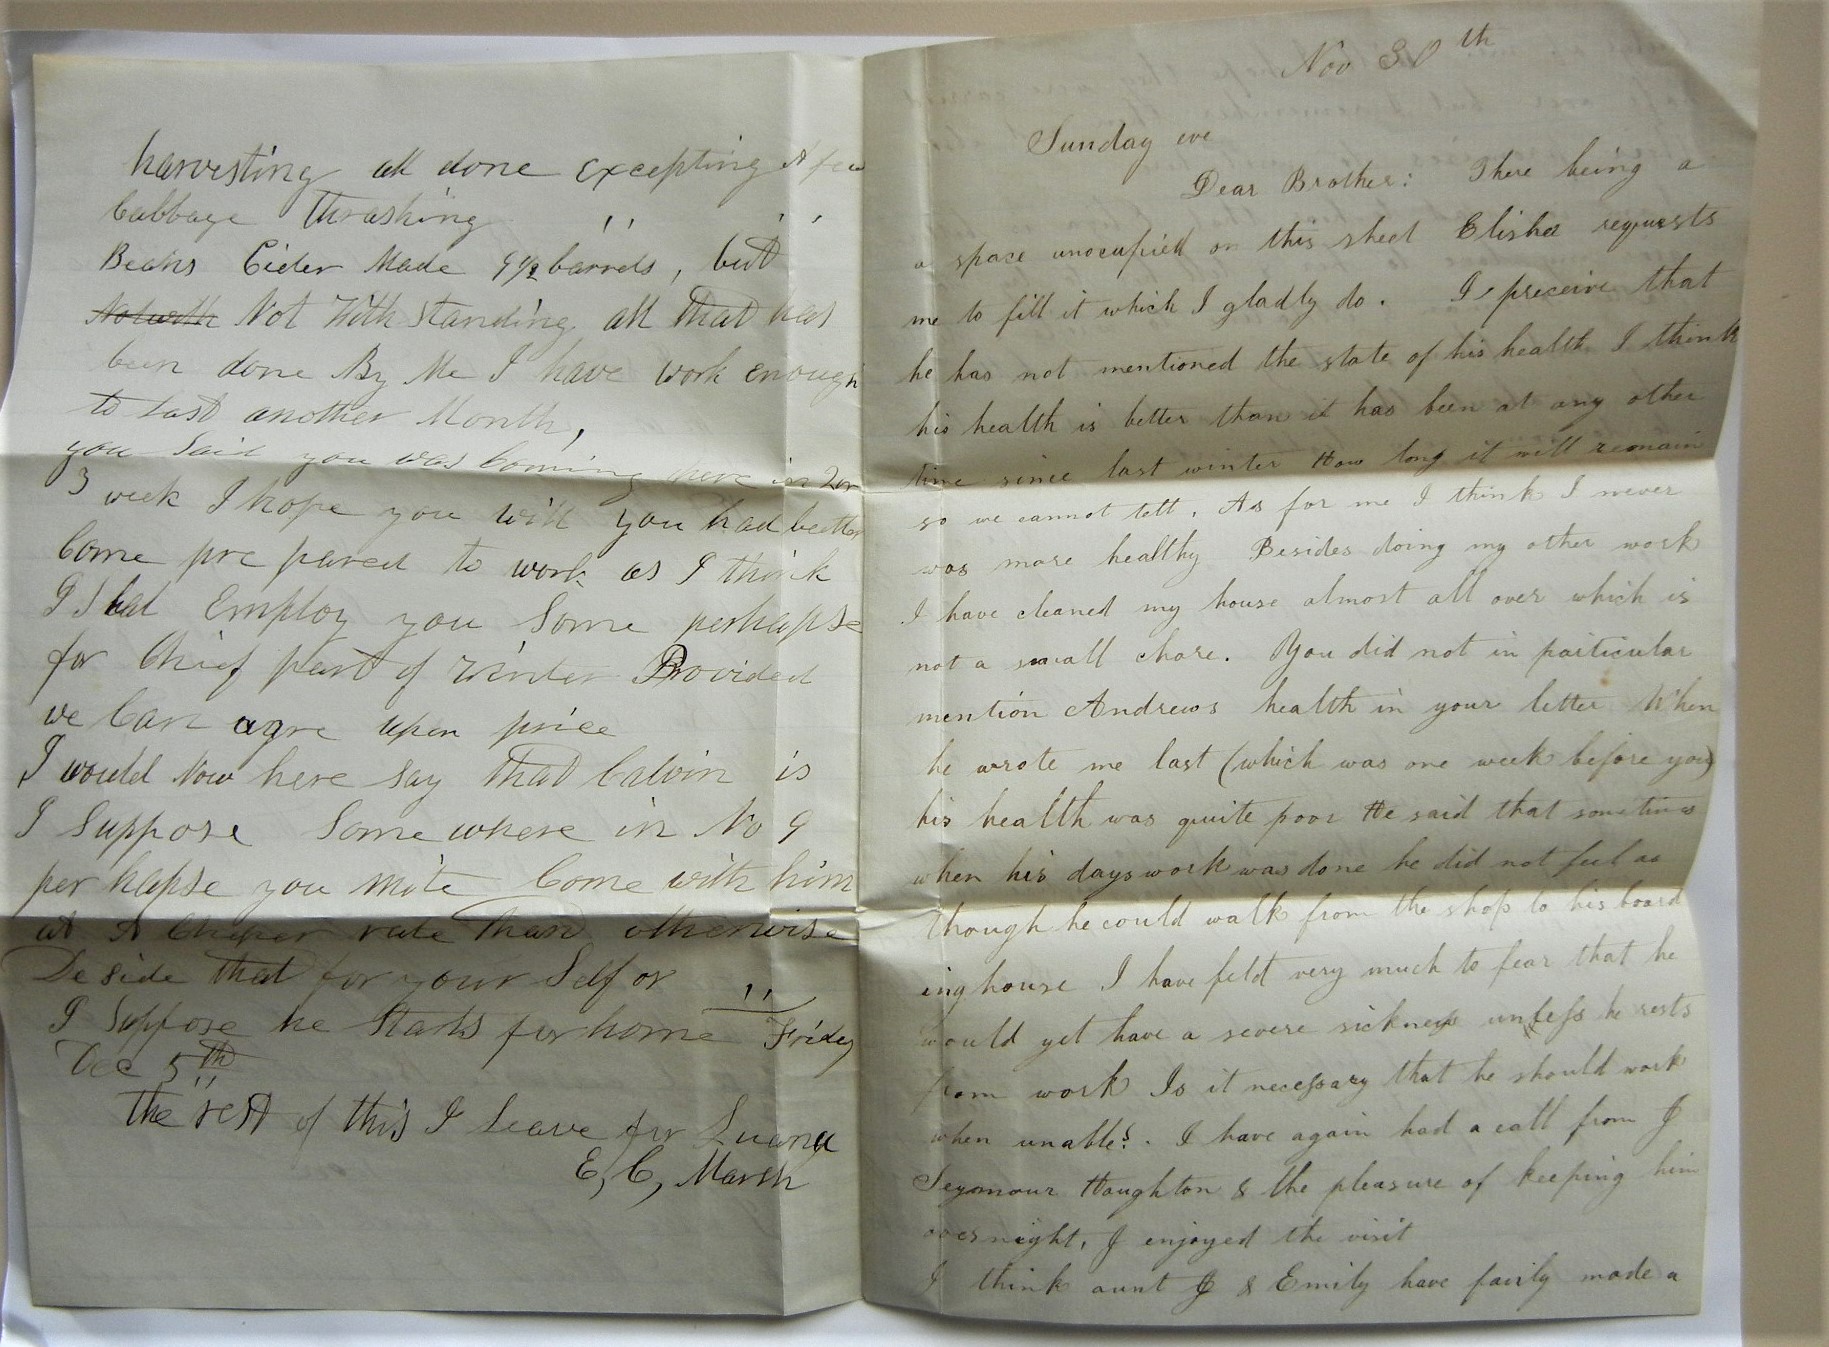 harvesting all done excepting A few
Cabbage Thrashing " "
Beans Cider Made 9 1/2 barrels, but
Notwith Not With Standing all that has
been done By Me I have work enough
to last another Month,
you Said you was Coming here in 2 or
3 week I hope you will you had better
Come pre pared to work as I think
I Shal Employ you Some perhapse
for Chief part of winter Provided
we Can agre upon price
I would Now here say that Calvin is
I Suppose Some where in No 9
per hapse you Mite Come with him
at A Cheper rate than otherwise
De side that for your Self or
I Suppose he Starts for home " Friday
Dec 5th
The rest of this I Leave for Luana
E, C, Marsh
Nov 30th
Sunday eve
Dear Brother: There being a
a space unocupied on this sheet Elisha requests
me to fill it which I gladly do. I preceive that
he has not mentioned the state of his health I think
his health is better than it has been at any other
time since last winter How long it will remain
so we cannot tell. As for me I think I never
was more healthy Besides doing my other work
I have cleaned my house almost all over which is
not a small chore. You did not in particular
mention Andrews health in your letter When
he wrote me last (which was one week before you)
his health was quite poor He said that sometimes
when his days work was done he did not feel as
though he could walk from the shop to his board
ing house I have feldt very much to fear that he
would yet have a severe sickness unless he rests
from work Is it necessary that he should work
when unable?. I have again had a call from J
Seymour Houghton & the pleasure of keeping him
overnight, I enjoyed the visit
I think aunt J & Emily have fairly made a